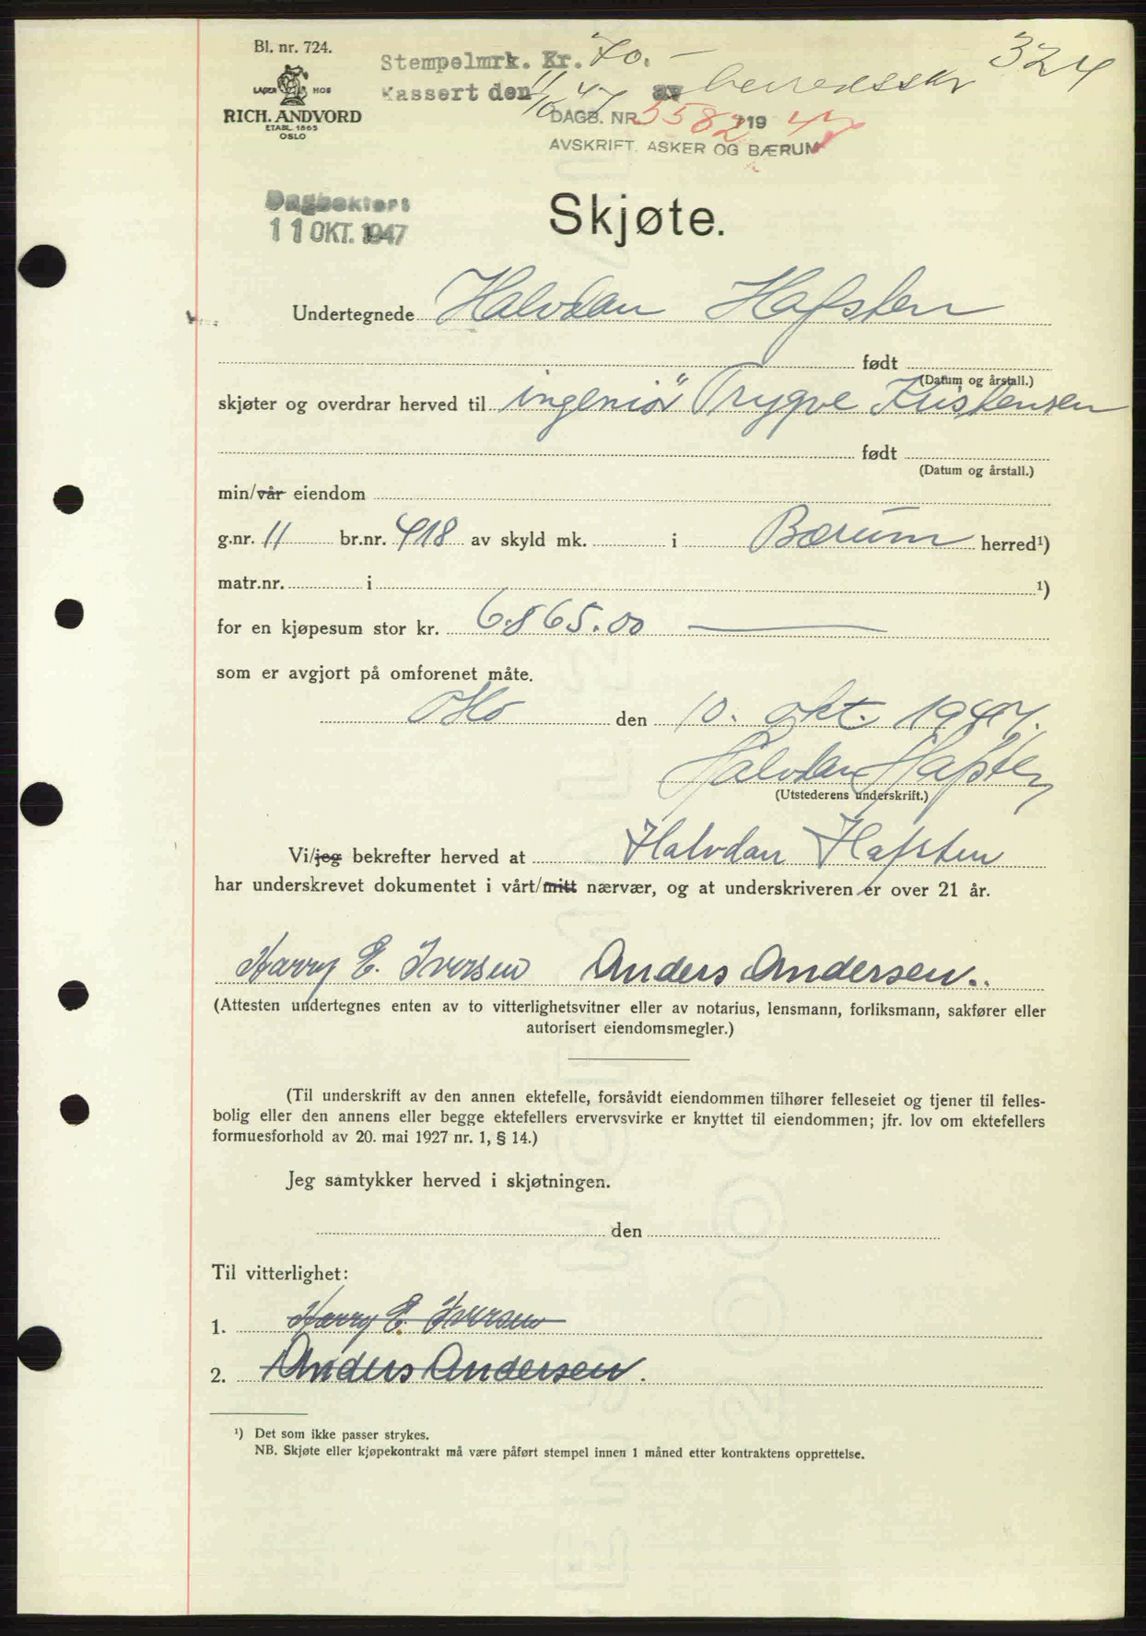 Bl. nr. 724.
LAGER HOS
RICH. ANDVORD
ETABL. 1865
OSLO
Stempelmrk. Kr. 70.-
Kassert den 11/10 47 av
324
DAGB. NR 5582 /19 47
AVSKRIFT. ASKER OG BÆRUM
Dagbokført
11 OKT. 1947
Skjøte.
Undertegnede Halvdan Hafsten
født
(Datum og årstall.)
skjøter og overdrar herved til ingeniør Trygve Kristensen
født
(Datum og årstall.)
min/vår eiendom
g.nr. 11 br.nr. 418 av skyld mk. i Bærum herred¹)
matr.nr. i ¹)
for en kjøpesum stor kr. 6.865.00
som er avgjort på omforenet måte.
Oslo den 10. okt. 1947.
Halvdan Hafsten
(Utstederens underskrift.)
Vi/jeg bekrefter herved at Halvdan Hafsten
har underskrevet dokumentet i vårt/mitt nærvær, og at underskriveren er over 21 år.
Harry E. Iversen Anders Andersen..
(Attesten undertegnes enten av to vitterlighetsvitner eller av notarius, lensmann, forliksmann, sakfører eller
autorisert eiendomsmegler.)
(Til underskrift av den annen ektefelle, forsåvidt eiendommen tilhører felleseiet og tjener til felles-
bolig eller den annens eller begge ektefellers ervervsvirke er knyttet til eiendommen; jfr. lov om ektefellers
formuesforhold av 20. mai 1927 nr. 1, § 14.)
Jeg samtykker herved i skjøtningen.
den
Til vitterlighet:
1. Harry E. Iversen
2. Anders Andersen.
¹) Det som ikke passer strykes.
NB. Skjøte eller kjøpekontrakt må være påført stempel innen 1 måned etter kontraktens opprettelse.